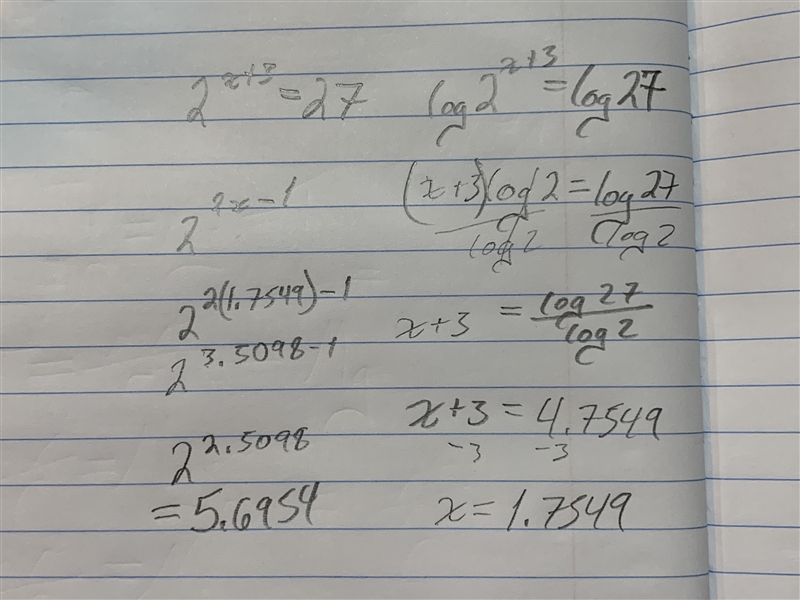 2^{x+3} = 27
2^{2x-1}
2^{2(1.7549)-1}
2^{3.5098-1}
2^{2.5098}
= 5.6954
log 2^{x+3} = log 27
(x+3) log 2 = log 27
log 2 log 2
x+3 = log 27
log 2
x+3 = 4.7549
-3 -3
x = 1.7549